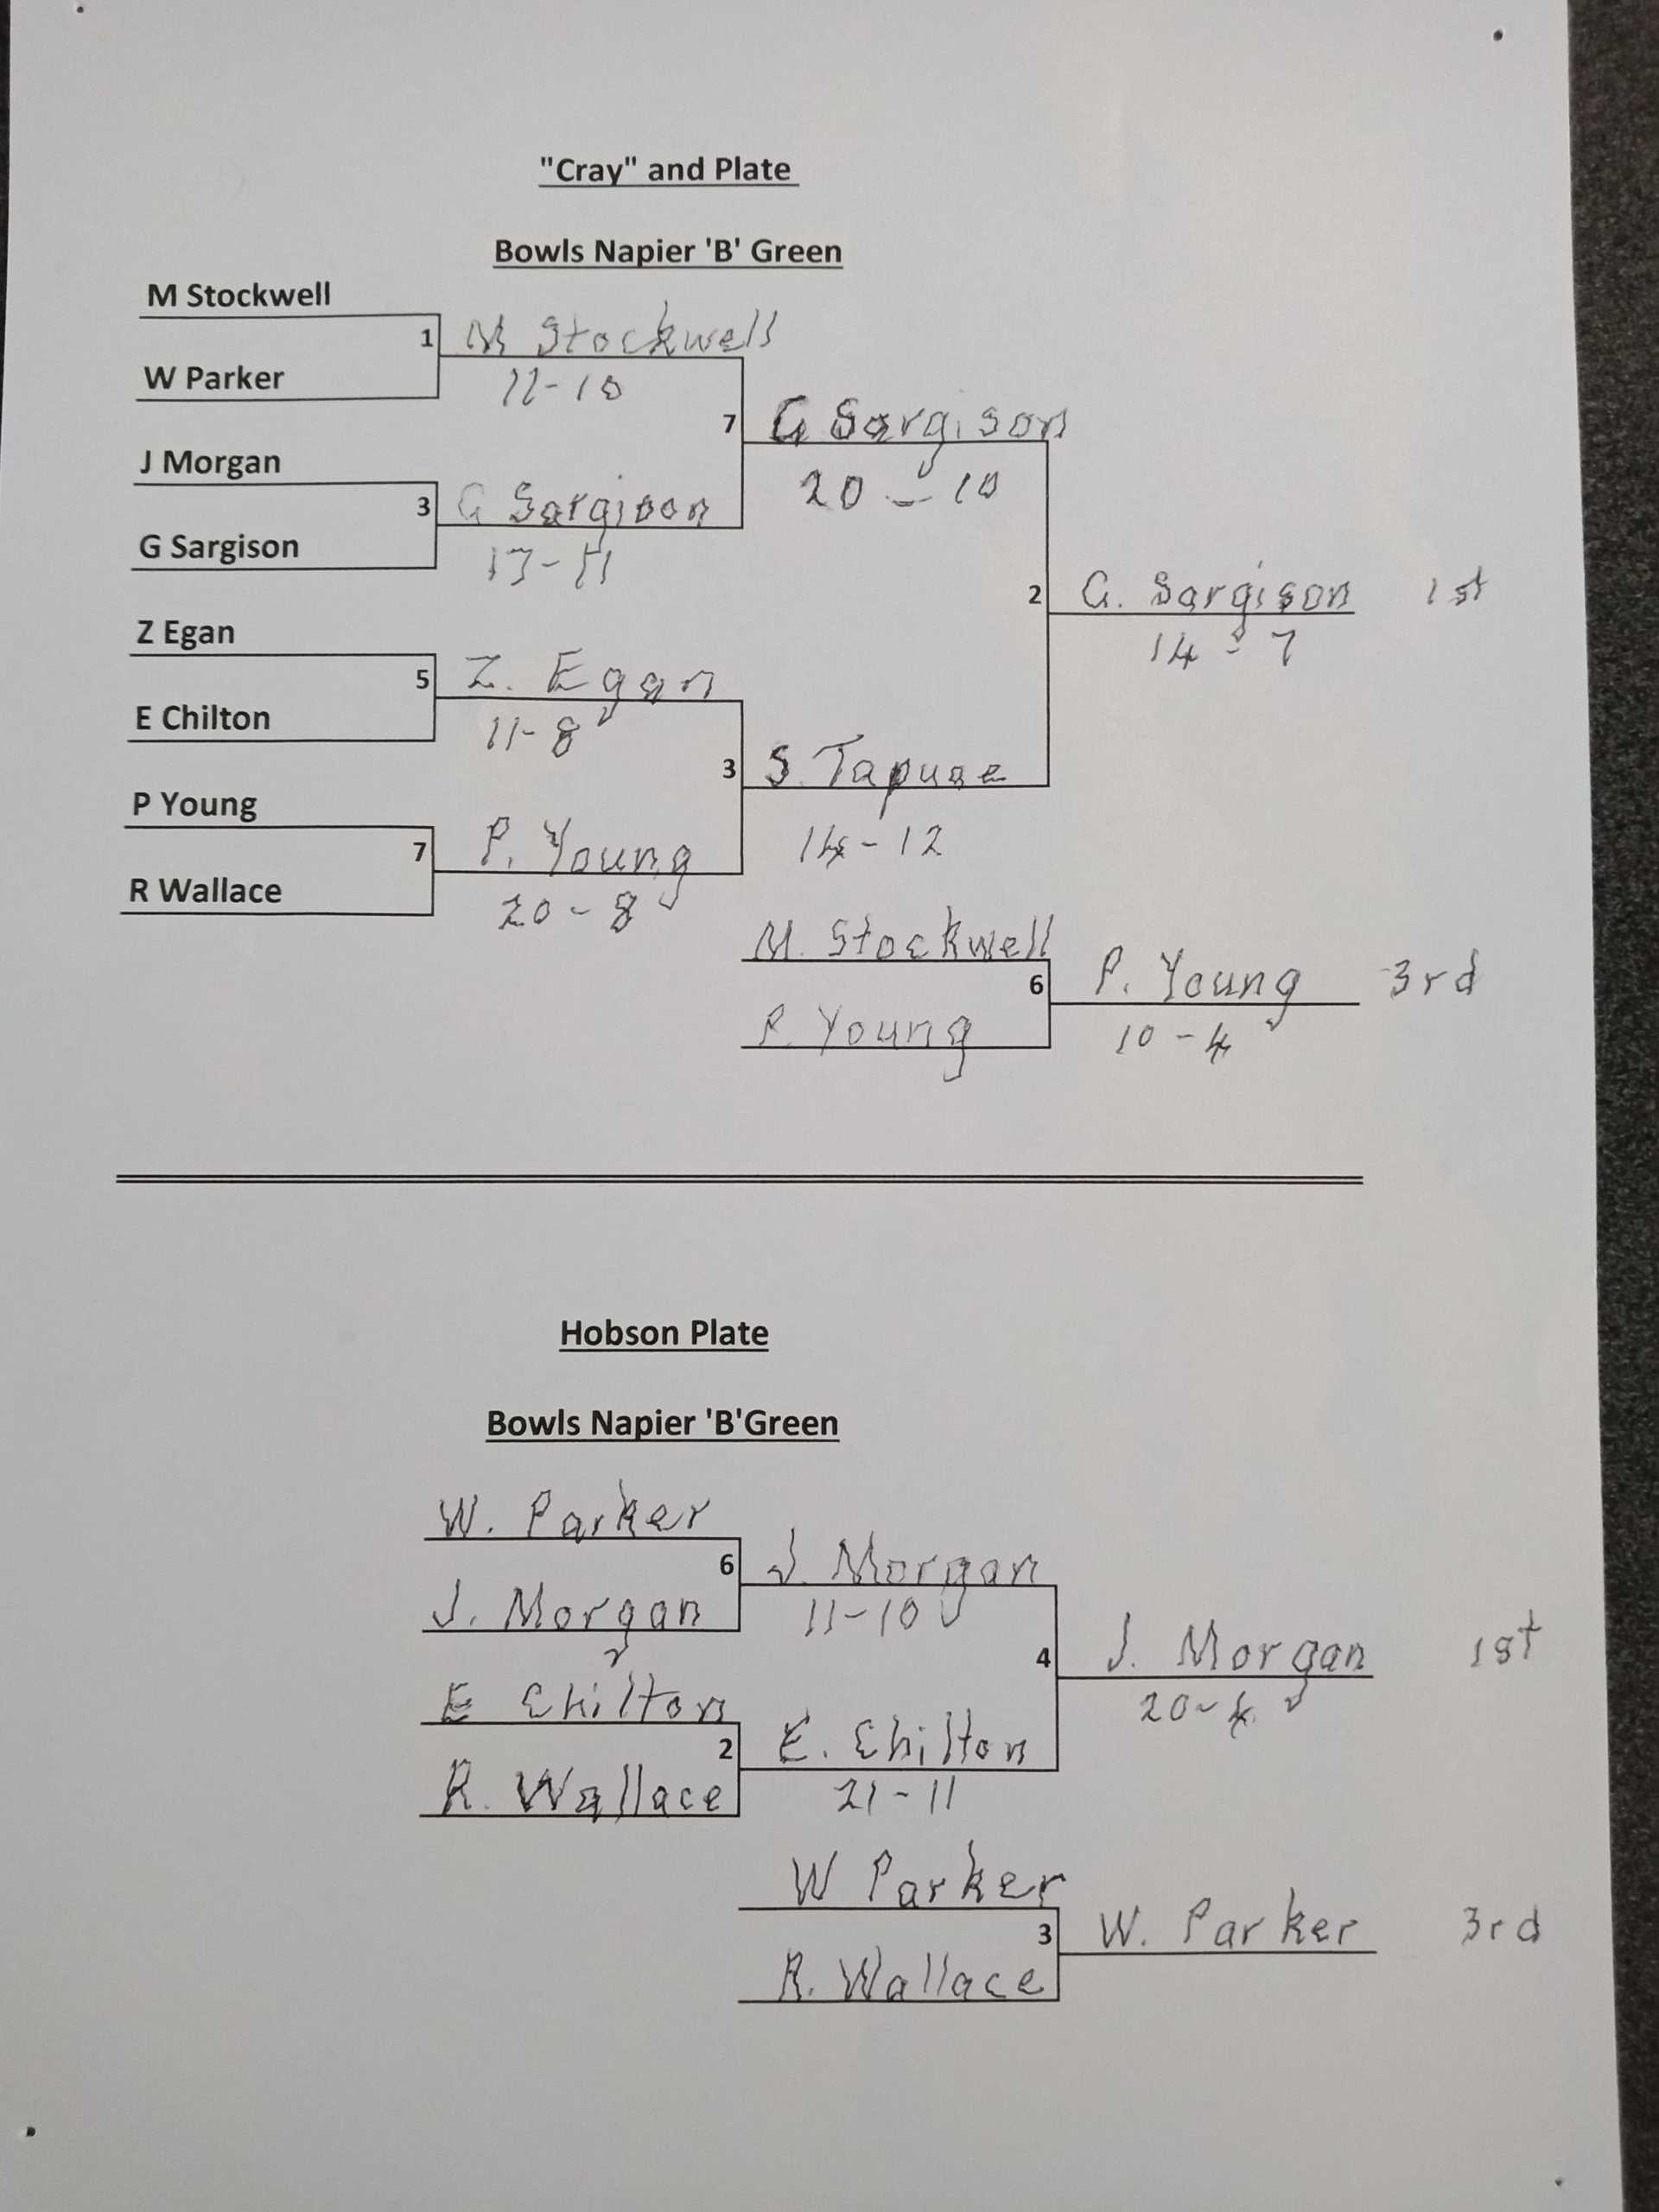 "Cray" and Plate
Bowls Napier 'B' Green
M Stockwell
1 M Stockwell
W Parker
11-10
7 G Sargison
J Morgan
20 - 10
3 G Sargison
G Sargison
13-11
2 G. Sargison 1st
14 - 7
Z Egan
5 Z. Egan
E Chilton
11-8
3 S. Tapuae
P Young
14-12
7 P. Young
R Wallace
20 - 8
M. Stockwell
6 P. Young 3rd
P. Young
10 - 4
Hobson Plate
Bowls Napier 'B'Green
W. Parker
6 J. Morgan
J. Morgan
11-10
4 J. Morgan 1st
20-4
E Chilton
2 E. Chilton
R. Wallace
21-11
W Parker
3 W. Parker 3rd
R. Wallace